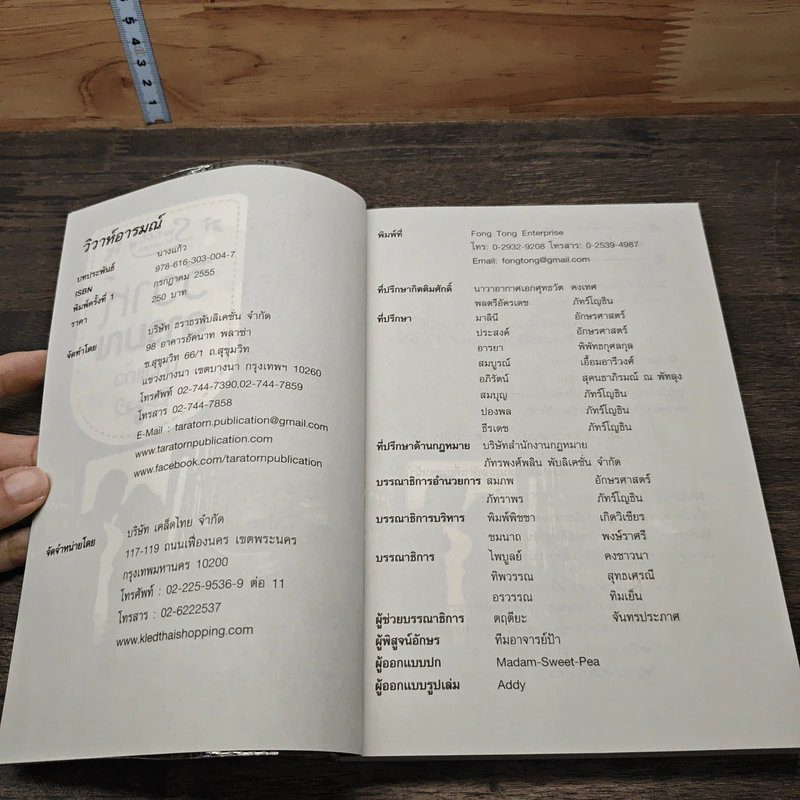 5 4 3 2 1
วิวาห์อารมณ์
บทประพันธ์ นางแก้ว
ISBN 978-616-303-004-7
พิมพ์ครั้งที่ 1 กรกฎาคม 2555
ราคา 250 บาท
จัดทำโดย บริษัท ธราธรพับลิเคชั่น จำกัด
98 อาคารอัคนาท พลาซ่า
ซ.สุขุมวิท 66/1 ถ.สุขุมวิท
แขวงบางนา เขตบางนา กรุงเทพฯ 10260
โทรศัพท์ 02-744-7390,02-744-7859
โทรสาร 02-744-7858
E-Mail : taratorn.publication@gmail.com
www.taratornpublication.com
www.facebook.com/taratornpublication
จัดจำหน่ายโดย บริษัท เคล็ดไทย จำกัด
117-119 ถนนเฟื่องนคร เขตพระนคร
กรุงเทพมหานคร 10200
โทรศัพท์ : 02-225-9536-9 ต่อ 11
โทรสาร : 02-6222537
www.kledthaishopping.com
พิมพ์ที่ Fong Tong Enterprise
โทร: 0-2932-9208 โทรสาร: 0-2539-4987
Email: fongtong@gmail.com
ที่ปรึกษากิตติมศักดิ์ นาวาอากาศเอกศุทธวัต คงเทศ
พลตรีอัครเดช ภัทร์โญธิน
ที่ปรึกษา มาลินี อักษรศาสตร์
ประสงค์ อักษรศาสตร์
อารยา พิพัทธกุศลกุล
สมบูรณ์ เอื้อมอารีวงศ์
อภิรัตน์ สุคนธาภิรมณ์ ณ พัทลุง
สมบุญ ภัทร์โญธิน
ปองพล ภัทร์โญธิน
ธีรเดช ภัทร์โญธิน
ที่ปรึกษาด้านกฎหมาย บริษัทสำนักงานกฎหมาย
ภัทรพงศ์พลิน พับลิเคชั่น จำกัด
บรรณาธิการอำนวยการ สมภพ อักษรศาสตร์
ภัทราพร ภัทร์โญธิน
บรรณาธิการบริหาร พิมพ์พิชชา เกิดวิเชียร
ชมนาถ พงษ์ราศรี
บรรณาธิการ ไพบูลย์ คงชาวนา
ทิพวรรณ สุทธเศรณี
อรวรรณ ทิมเย็น
ผู้ช่วยบรรณาธิการ ตฤติยะ จันทรประภาศ
ผู้พิสูจน์อักษร ทีมอาจารย์ป้า
ผู้ออกแบบปก Madam-Sweet-Pea
ผู้ออกแบบรูปเล่ม Addy